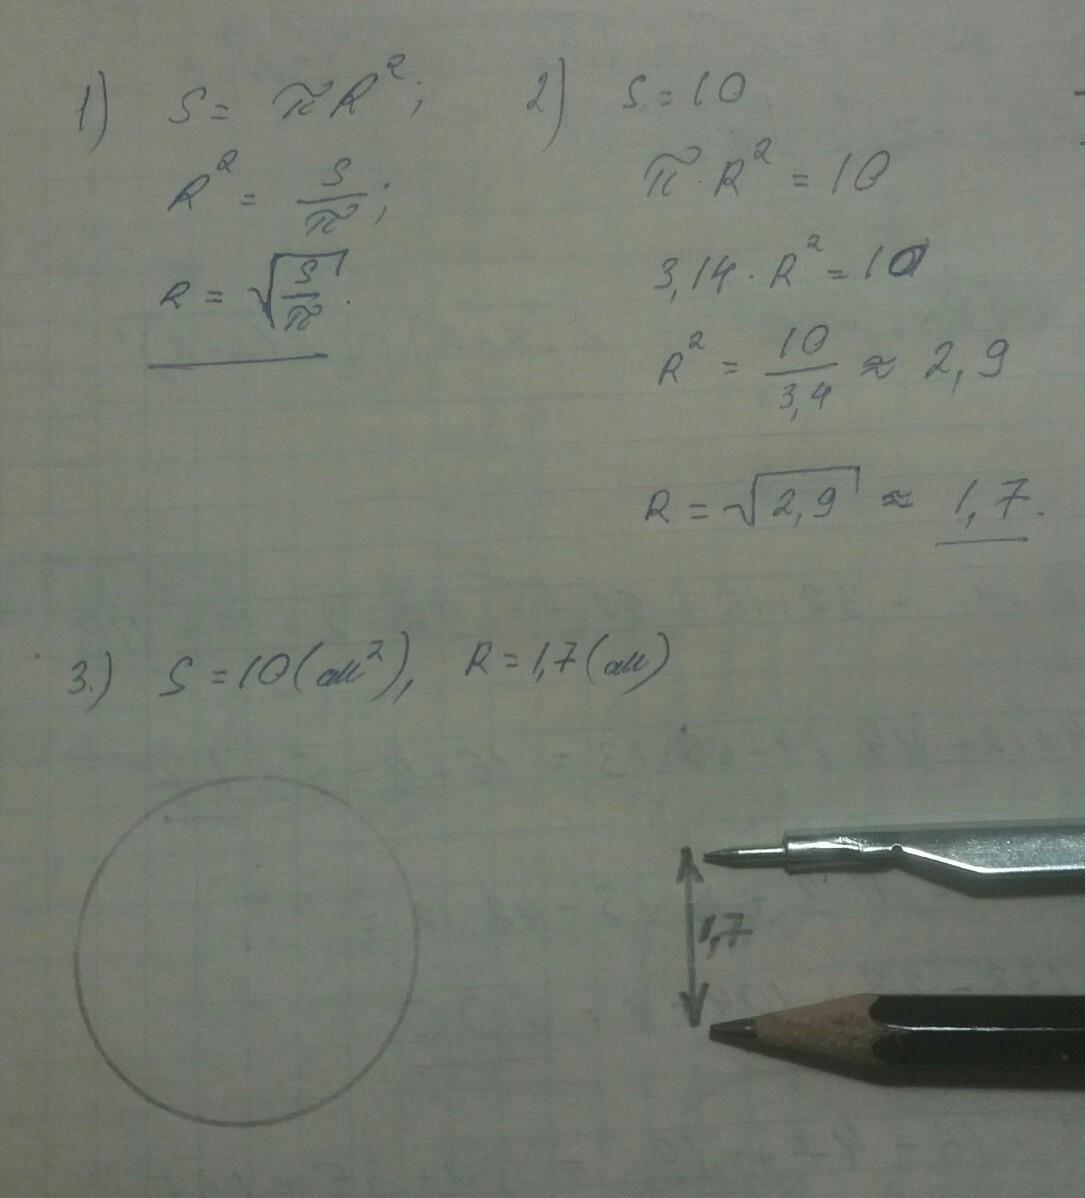 1) S = πR²;
R² = S/π;
R = √(S/π).
2) S = 10
π · R² = 10
3,14 · R² = 10
R² = 10/3,4 ≈ 2,9
R = √2,9 ≈ 1,7.
3.) S = 10 (см²), R = 1,7 (см)
1,7